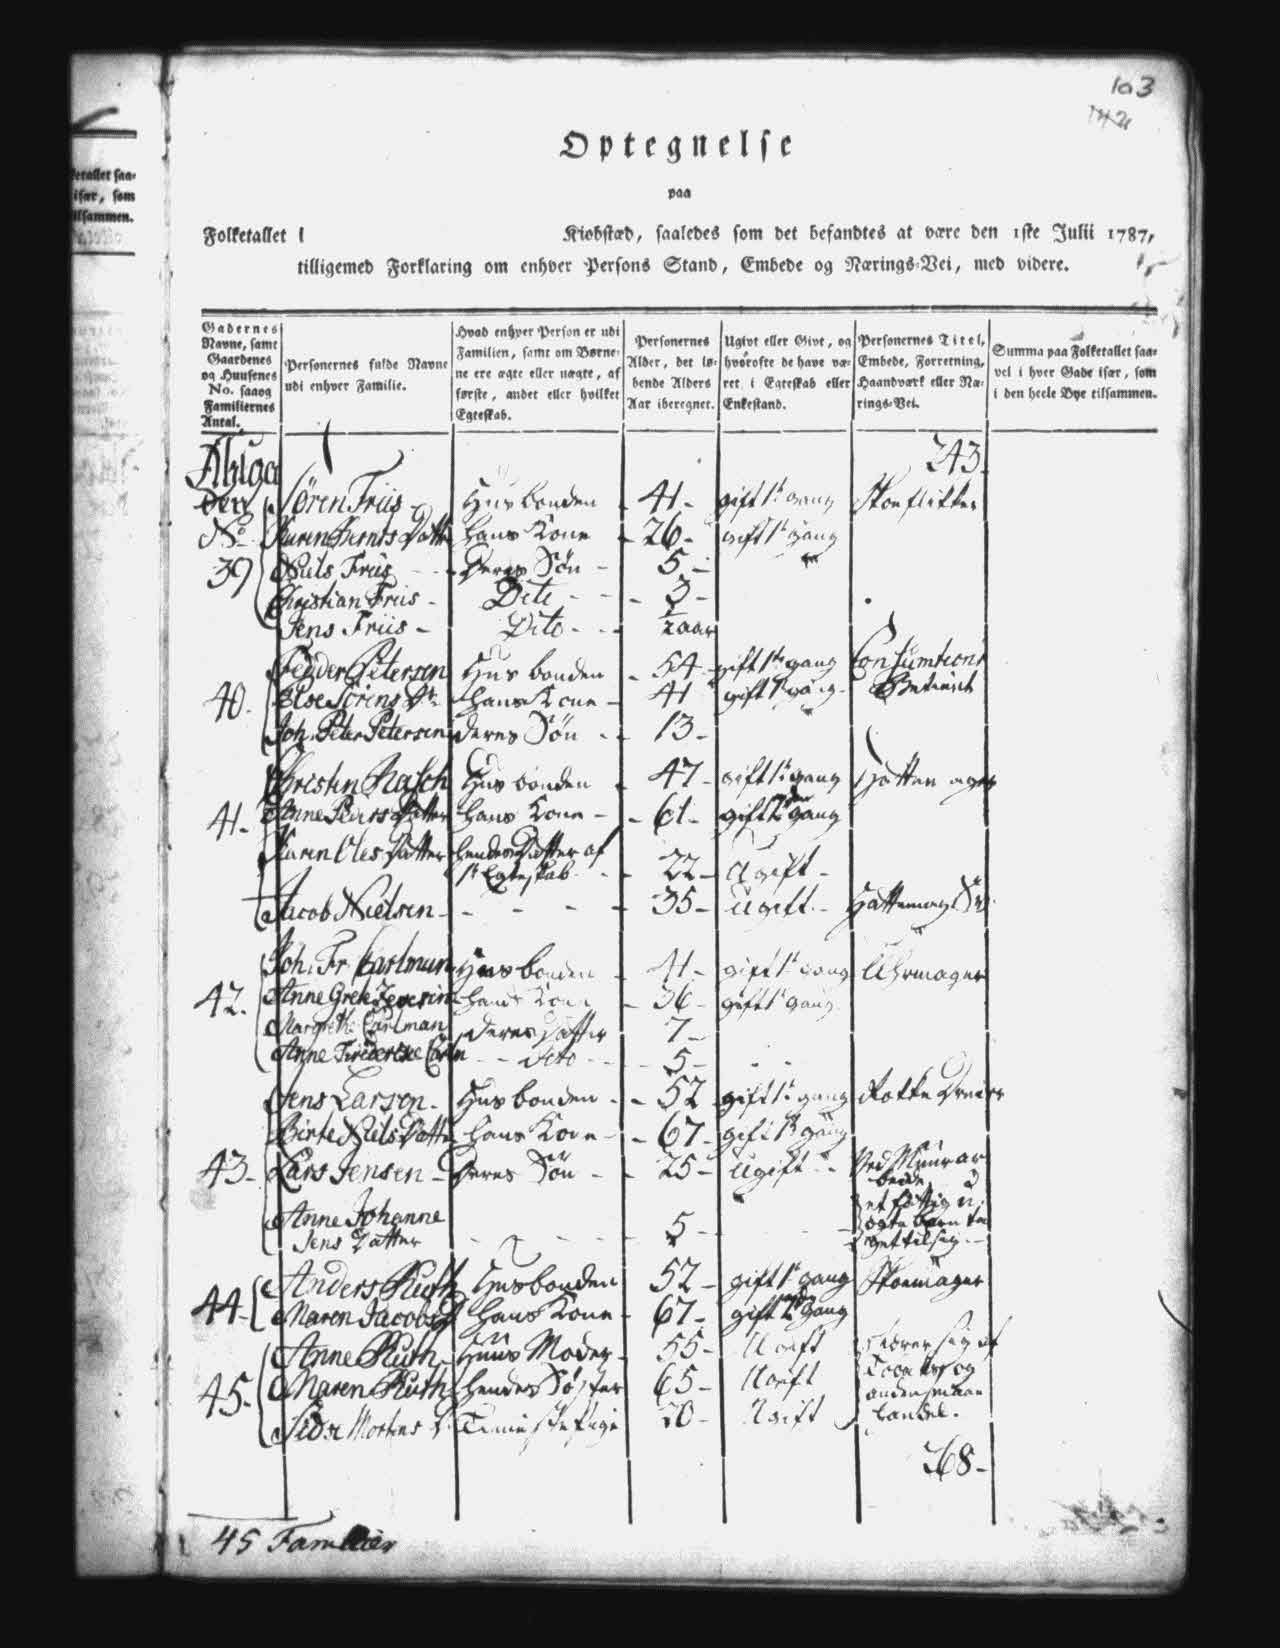 103
Optegnelse
paa
Folketallet i Kiøbstæd, saaledes som det befandtes at være den 1ste Julii 1787,
tilligemed Forklaring om enhver Persons Stand, Embede og Nærings-Vei, med videre.
Gadernes Navne, samt Gaardenes og Huusenes No. saaog Familiernes Antal.
Personernes fulde Navne udi enhver Familie.
Hvad enhver Person er udi Familien, samt om Børnene ere ægte eller uægte, af første, andet eller hvilket Egteskab.
Personernes Alder, det løbende Alders Aar iberegnet.
Ugivt eller Givt, og hvorofte de have været i Egteskab eller Enkestand.
Personernes Titel, Embede, Forretning, Haandværk eller Nærings-Vei.
Summa paa Folketallet saavel i hver Gade især, som i den heele Bye tilsammen.
243.
Sören Friis Husbonden 41 gift 1t gang Skoeflikker
No. Karen Bernts Datter hans Kone 26 gift 1t gang
39 Niels Friis Deres Sön 5
Christian Friis Dito 3
Jens Friis Dito 1/2 aar
Pedder Petersen Husbonden 54 gift 1t gang Consumtions
40. Else Sörens Dr hans Kone 41 gift 1t gang Betient
Joh. Peter Petersen deres Sön 13
Christen Rasch Husbonden 47 gift 1t gang Hattemager
41. Anne Peders Datter hans Kone 61 gift 2den gang
Karen Oles Datter hendes Datter af
1t Egteskab 22 Ugift
Jacob Nielsen 35 Ugift Hattemag. Sv.
Joh. Fr. Carlman Husbonden 41 gift 1t gang Uhrmager
42. Anne Grete Severin hans Kone 36 gift 1t gang
Margrethe Carlman deres Datter 7
Anne Friderikke Carlm Dito 5
Jens Larsen Husbonden 52 gift 1t gang Rokke Dreier
Birte Niels Datter hans Kone 67 gift 1t gang
43 Lars Jensen Deres Sön 25 Ugift Ved Muurar
beide
Anne Johanne et fattig u
Jens Datter 5 ægte barn
44 Anders Ruth Husbonden 52 gift 1t gang Skoemager
Maren Jacobs D hans Kone 67 gift 2den gang
Anne Ruth Huus Moder 55 Ugift
45. Maren Ruth hendes Söster 65 Ugift
anden smaae
Sidse Mortens D. Tienneste Pige 20 Ugift handel.
268
45 Familier